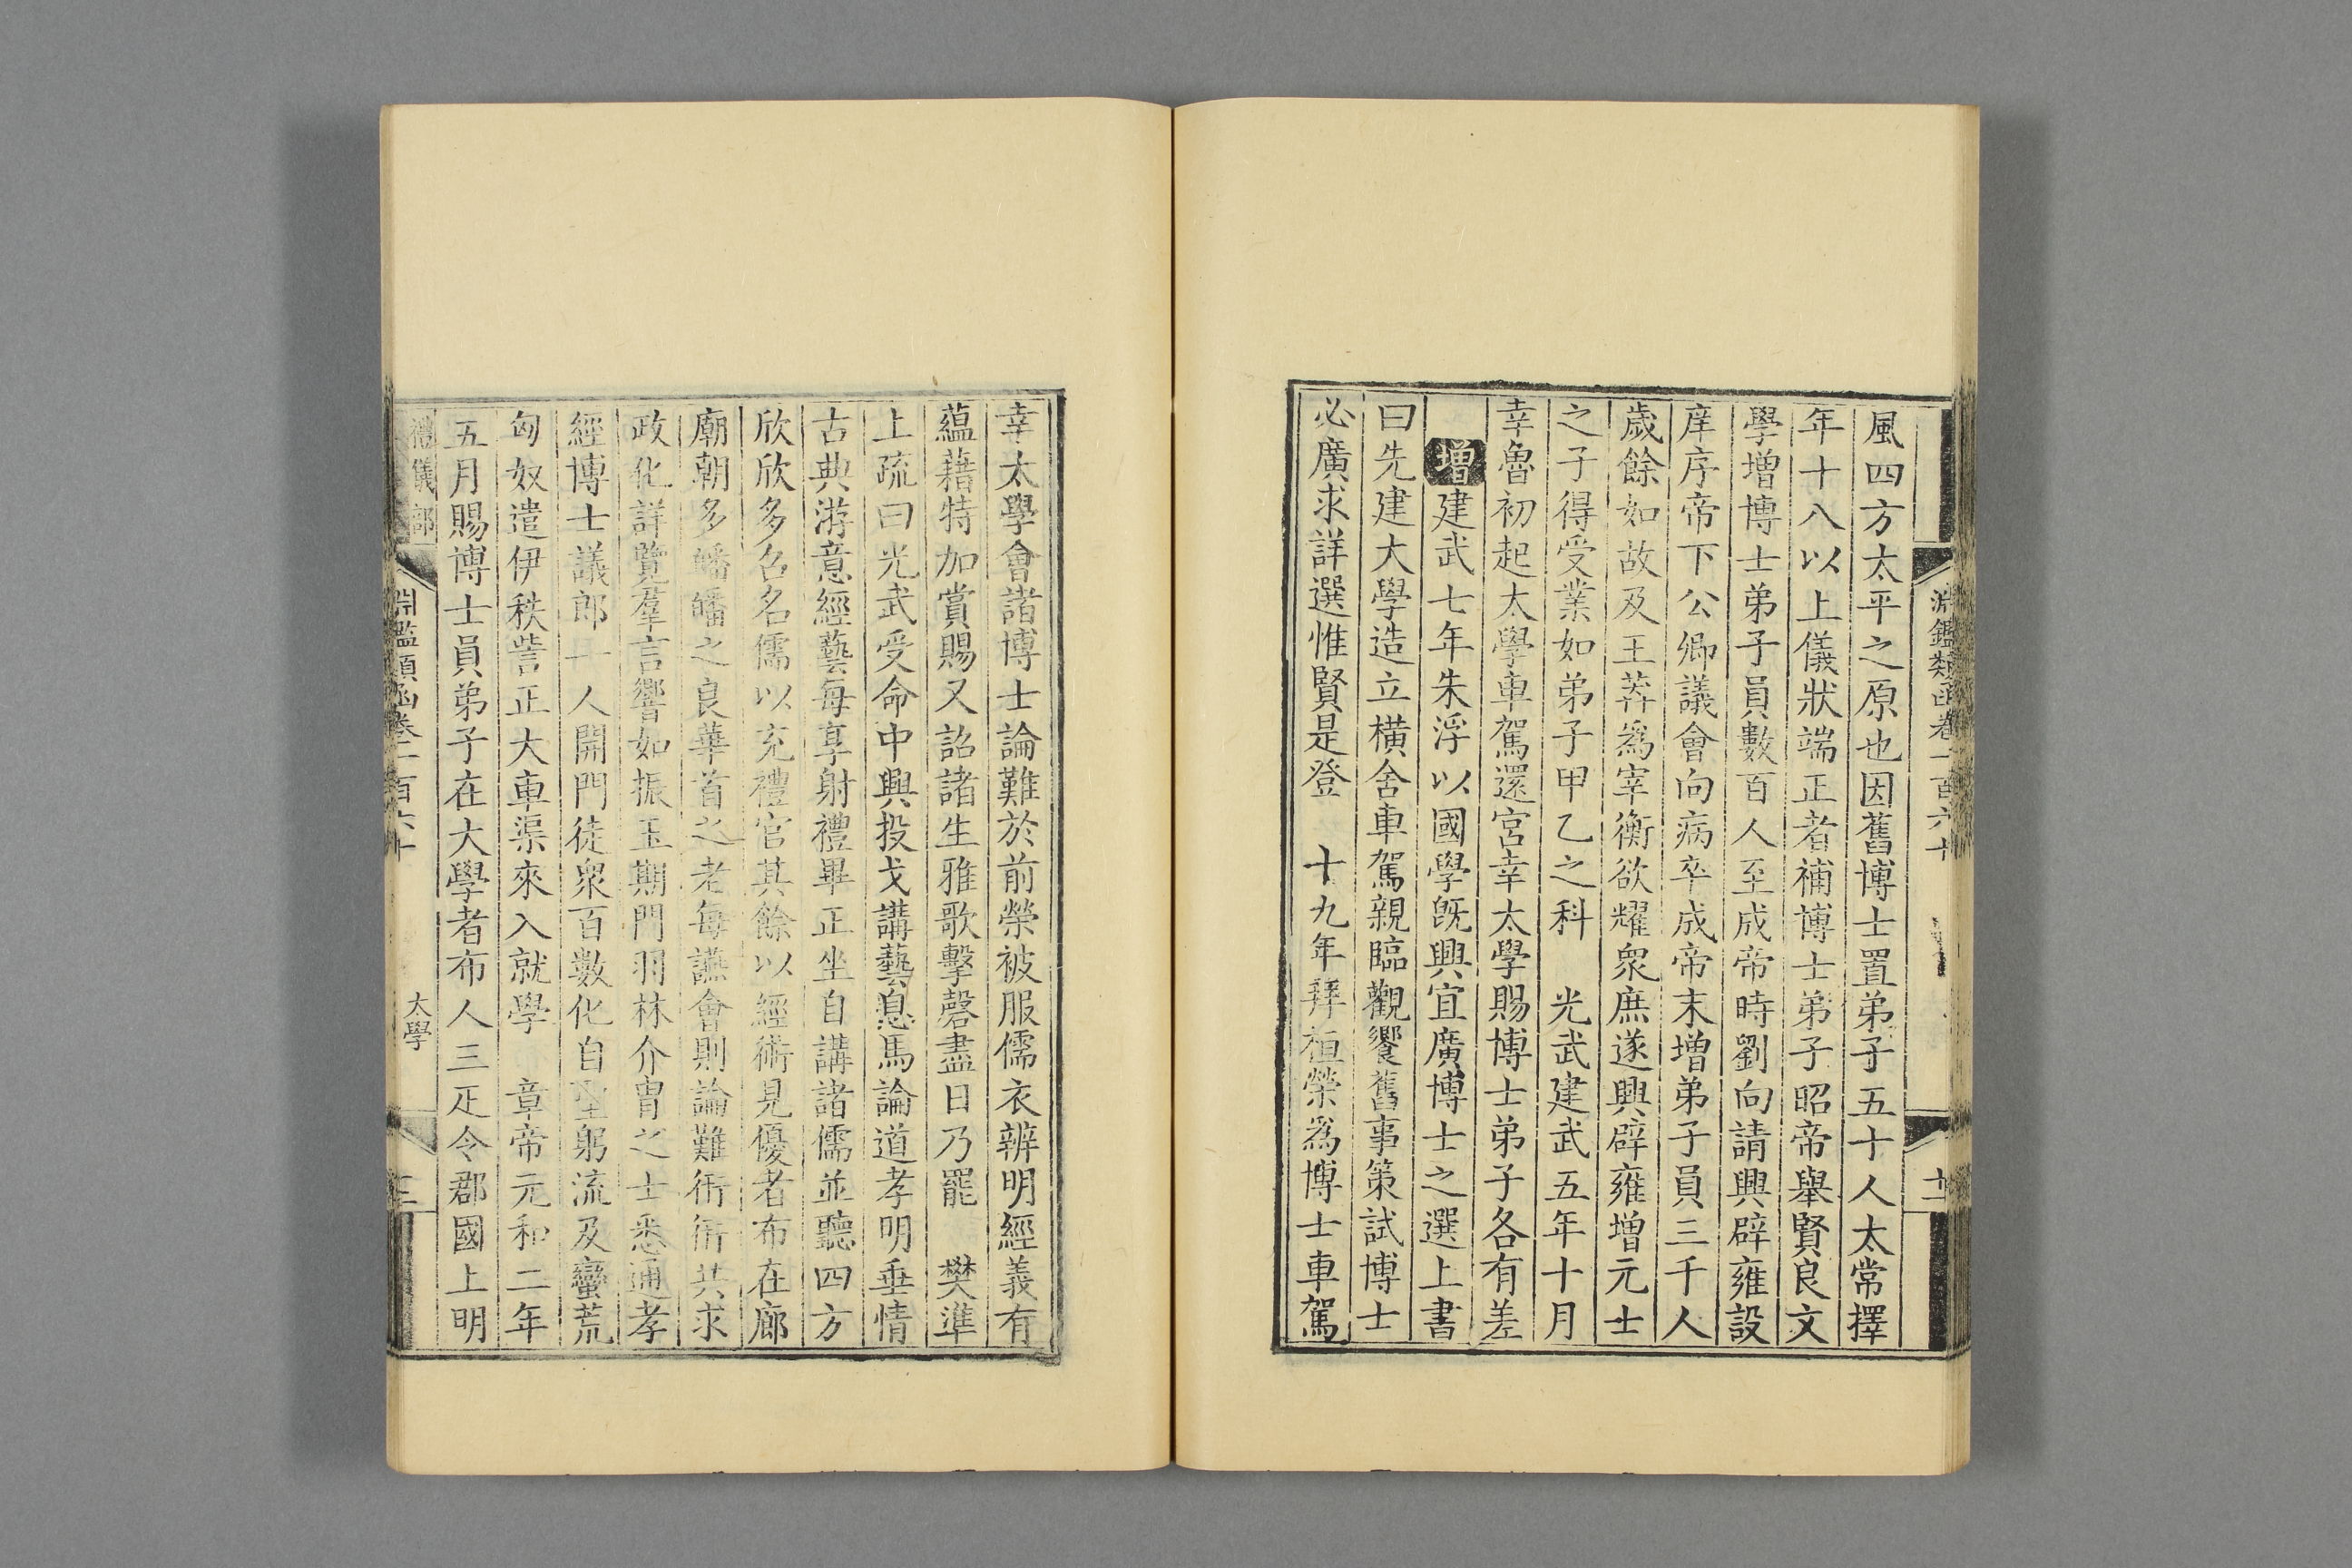 淵鑑類函卷一百六十
風四方太平之原也因舊博士置弟子五十人太常擇
年十八以上儀狀端正者補博士弟子昭帝舉賢良文
學增博士弟子員數百人至成帝時劉向請興辟雍設
庠序帝下公卿議會向病卒成帝末增弟子員三千人
歲餘如故及王莽為宰衡欲耀眾庶遂興辟雍增元士
之子得受業如弟子甲乙之科 光武建武五年十月
幸魯初起太學車駕還宮幸太學賜博士弟子各有差
增建武七年朱浮以國學旣興宜廣博士之選上書
曰先建大學造立橫舍車駕親臨觀饗舊事策試博士
必廣求詳選惟賢是登 十九年拜桓榮為博士車駕
幸太學會諸博士論難於前榮被服儒衣辨明經義有
蘊藉特加賞賜又詔諸生雅歌擊磬盡日乃罷 樊準
上疏曰光武受命中興投戈講藝息馬論道孝明垂情
古典游意經藝每享射禮畢正坐自講諸儒並聽四方
欣欣多召名儒以充禮官其餘以經術見優者布在廊
廟朝多皤皤之良華首之老每讌會則論難衎衎共求
政化詳覽羣言響如振玉期門羽林介冑之士悉通孝
經博士議郎一人開門徒眾百數化自聖躬流及蠻荒
匈奴遣伊秩訾正大車渠來入就學 章帝元和二年
五月賜博士員弟子在大學者布人三疋令郡國上明
禮儀部 淵鑑類函卷一百六十 太學